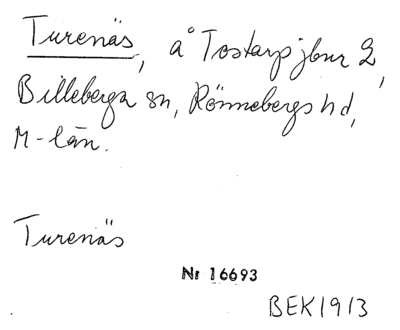 Turenäs, å Tostarp jbnr 2,
Billeberga sn, Rönnebergs hd,
M-län.
Turenäs
Nr 16693
BEK1913